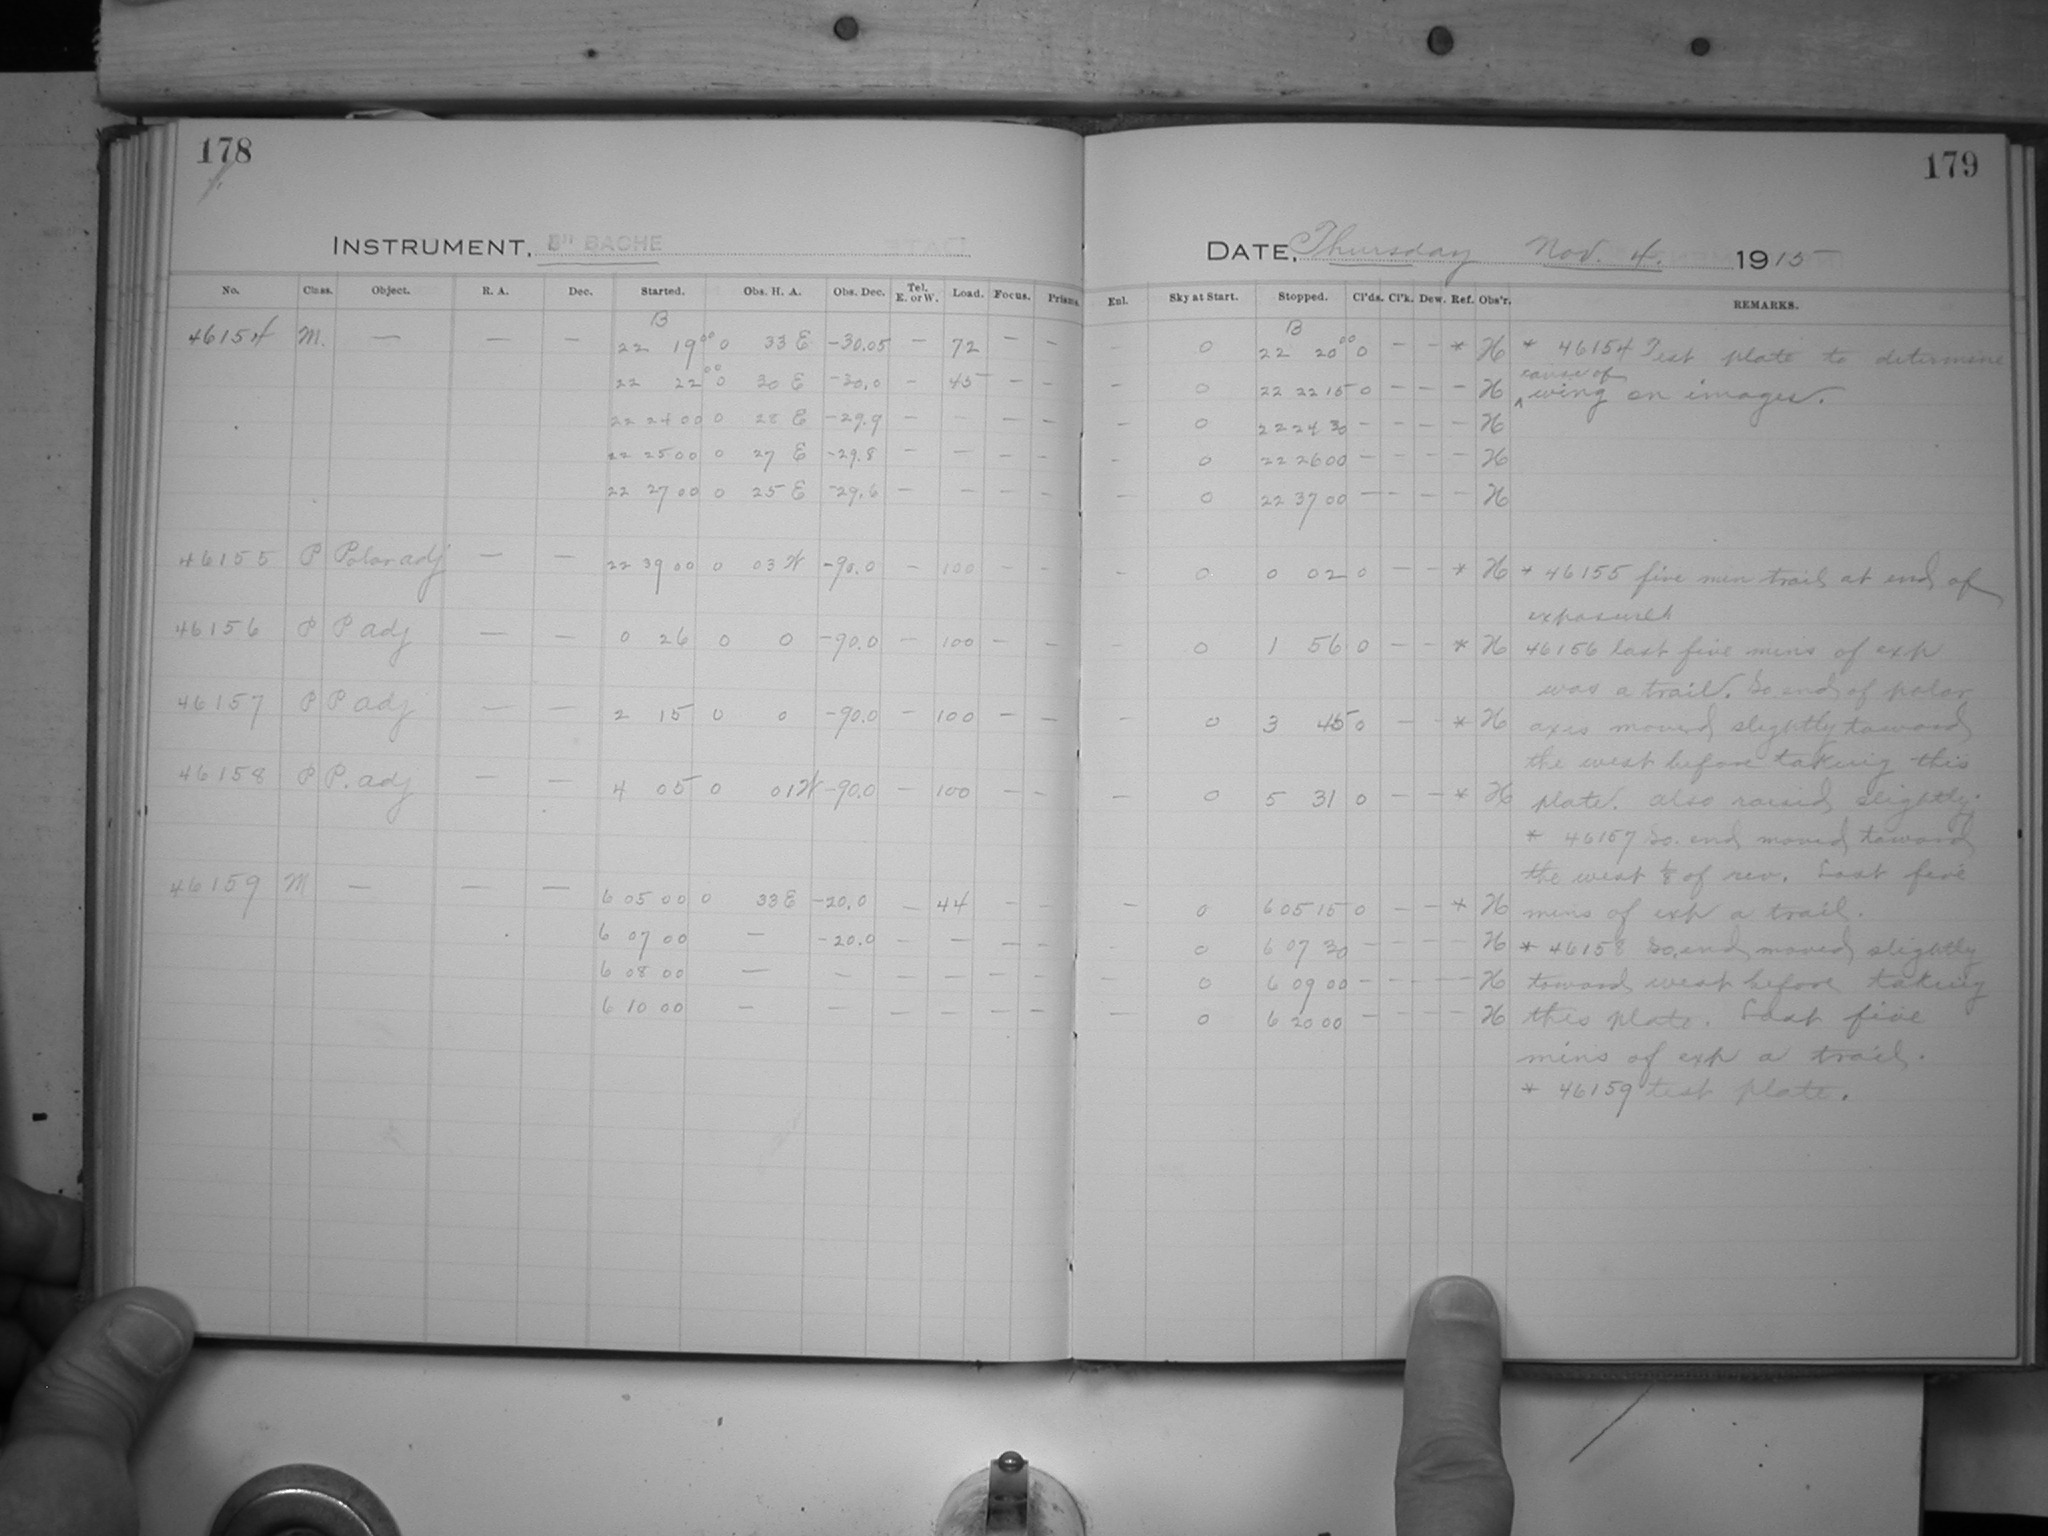 178
INSTRUMENT, 8" BACHE
No. Class. Object. R. A. Dec. Started. Obs. H. A. Obs. Dec. Tel. E. or W. Load. Focus. Prisms.
B
46154 M. — — — 22 19 00 0 33 E -30.05 — 72 — —
22 22 00 0 30 E -30.0 — 45 — —
22 24 00 0 28 E -29.9 — — — —
22 25 00 0 27 E -29.8 — — — —
22 27 00 0 25 E -29.6 — — — —
46155 P Polar adj — — 22 39 00 0 03 W -90.0 — 100 — —
46156 P P adj — — 0 26 0 0 -90.0 — 100 — —
46157 P P adj — — 2 15 0 0 -90.0 — 100 — —
46158 P P. adj — — 4 05 0 01 W -90.0 — 100 — —
46159 M — — — 6 05 00 0 33 E -20.0 — 44 — —
6 07 00 — -20.0 — — — —
6 08 00 — — — — — —
6 10 00 — — — — — —
179
DATE, Thursday Nov. 4. 1915
Enl. Sky at Start. Stopped. Cl'ds. Cl'k. Dew. Ref. Obs'r. REMARKS.
B
— 0 22 20 00 0 — — * H * 46154 Test plate to determine
cause of
— 0 22 22 15 0 — — — H ^ wing on images.
— 0 22 24 30 — — — — H
— 0 22 26 00 — — — — H
— 0 22 37 00 — — — — H
— 0 0 02 0 — — * H * 46155 five min trail at end of
exposure
— 0 1 56 0 — — * H 46156 last five mins of exp
was a trail. So. end of polar
— 0 3 45 0 — — * H axis moved slightly toward
the west before taking this
— 0 5 31 0 — — * H plate. Also raised slightly.
* 46157 So. end moved toward
the west 1/8 of rev. Last five
— 0 6 05 15 0 — — * H mins of exp a trail.
— 0 6 07 30 — — — — H * 46158 So. end moved slightly
— 0 6 09 00 — — — — H toward west before taking
— 0 6 20 00 — — — — H this plate. Last five
mins of exp a trail.
* 46159 test plate.